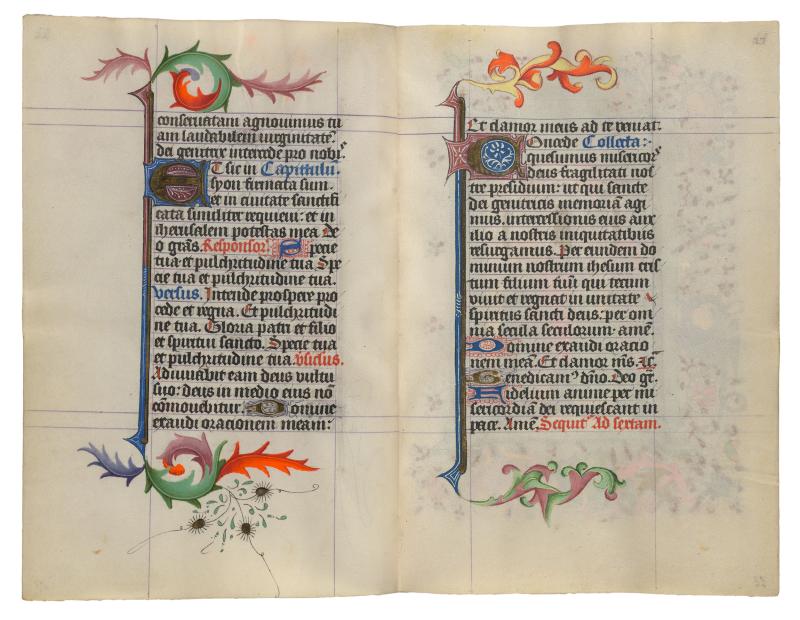 conseruatam agnouimus tu
am laudabilem uirginitatē
dei genitrix intercede pro nobis
Et sic in Capittulū.
syon firmata sum.
et in ciuitate sanctifi
cata similiter requieui: et in
iherusalem potestas mea De
o grās. Responsor. Specie
tua et pulchritudine tua Spe
cie tua et pulchritudine tua.
versus. Intende prospere pro
cede et regna. Et pulchritudi
ne tua. Gloria patri et filio
et spiritui sancto. Specie tua
et pulchritudine tua. vsiclus.
Adiuuabit eam deus vultu
suo: deus in medio eius nō
cōmouebitur. Domine
exaudi orationem meam:
Et clamor meus ad te veniat.
Concede Collecta:
quesumus misericors
deus fragilitati nos
tre presidium: ut qui sancte
dei genitricis memoriā agi
mus. intercessionis eius aux
ilio a nostris iniquitatibus
resurgamus. Per eundem do
minum nostrum ihesum cris
tum filium tuū qui tecum
viuit et regnat in unitate
spiritus sancti deus: per om
nia secula seculorum. amē.
Domine exaudi oratio
nem meā. Et clamor m̄s.
Benedicamꝰ dn̄o. Deo gr̄.
Fidelium anime per mi
sericordiā dei requiescant in
pace. Amē. Sequit Ad sextam.